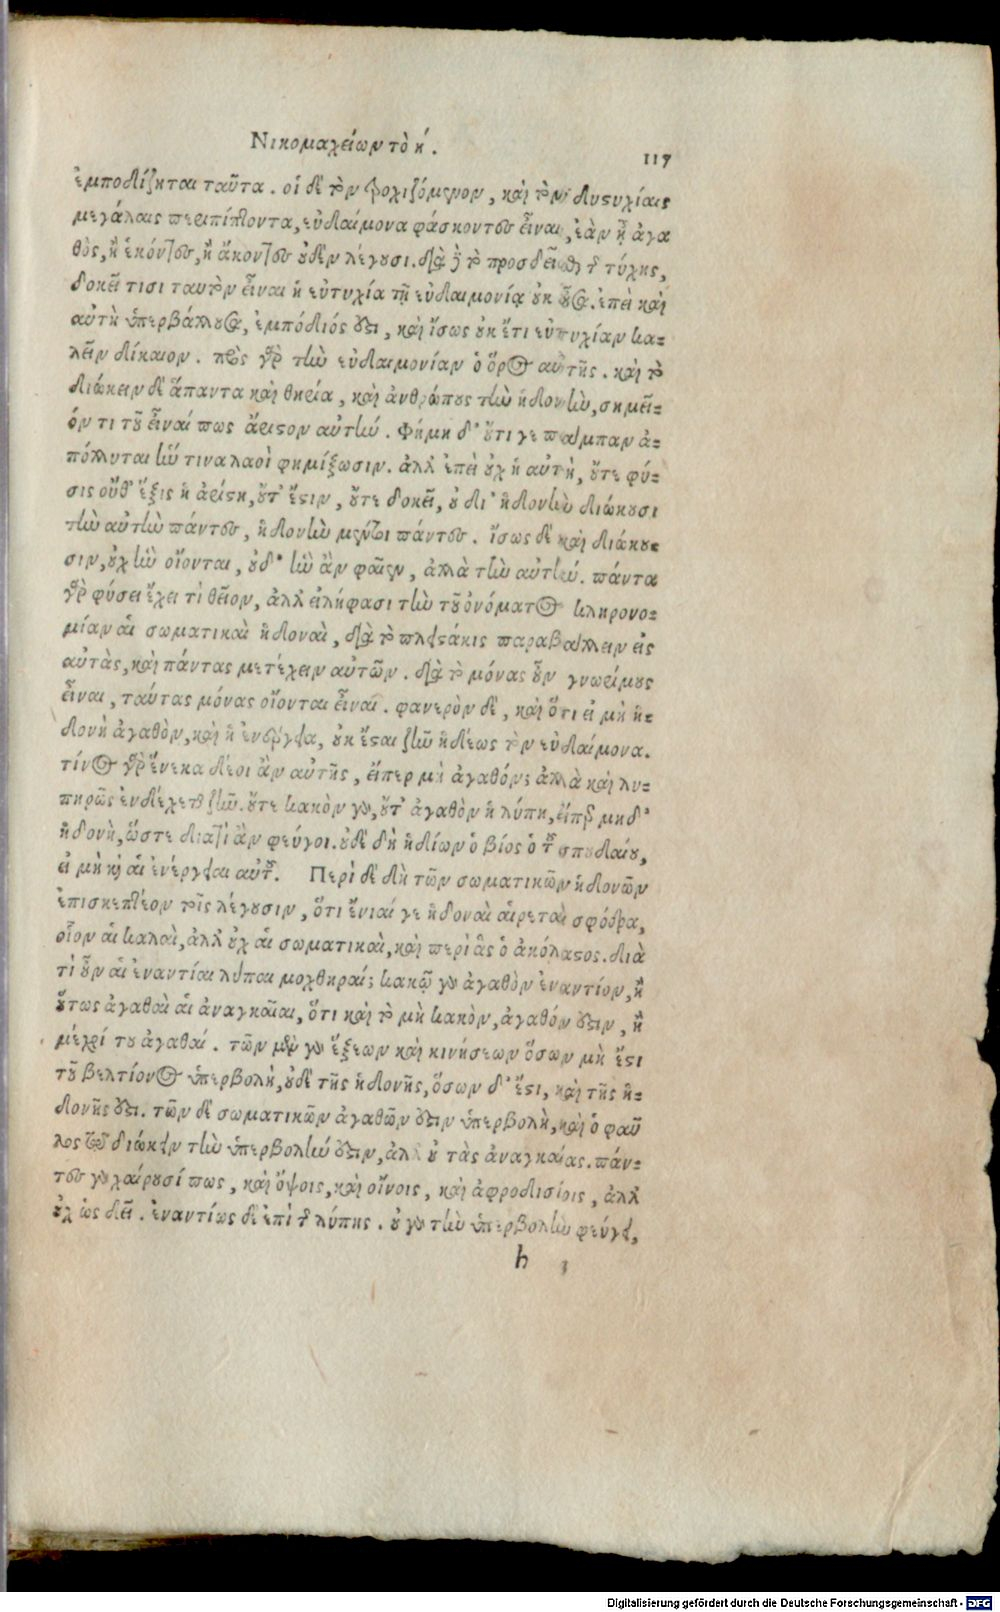 Νικομαχείων τὸ ή.
117
ἐμποδίζηται ταῦτα. οἱ δὲ τὸν τροχιζόμενον, καὶ τὸν δυστυχίαις
μεγάλαις περιπίπτοντα, εὐδαίμονα φάσκοντες εἶναι, ἐὰν ᾖ ἀγα
θὸς, ἢ ἑκόντες, ἢ ἄκοντες οὐδὲν λέγουσι. διὰ δὲ τὸ προσδεῖσθαι τῆς τύχης,
δοκεῖ τισι ταυτὸν εἶναι ἡ εὐτυχία τῇ εὐδαιμονίᾳ οὐκ οὖσα. ἐπεὶ καὶ
αὐτὴ ὑπερβάλλουσα, ἐμπόδιός ἐστι, καὶ ἴσως οὐκ ἔτι εὐτυχίαν κα-
λεῖν δίκαιον. πρὸς γὰρ τὴν εὐδαιμονίαν ὁ ὅρος αὐτῆς. καὶ τὸ
διώκειν δὲ ἅπαντα καὶ θηρία, καὶ ἀνθρώπους τὴν ἡδονὴν, σημεῖ-
όν τι τοῦ εἶναί πως ἄριστον αὐτήν. Φήμη δ' οὔτι γε παμπαν ἀ-
πόλλυται ἥν τινα λαοὶ φημίξωσιν. ἀλλ' ἐπεὶ οὐχ ἡ αὐτὴ, οὔτε φύ-
σις οὔθ' ἕξις ἡ ἀρίστη, οὔτ' ἔστιν, οὔτε δοκεῖ, οὐ δι' ἡδονὴν διώκουσι
τὴν αὐτὴν πάντες, ἡδονὴν μέντοι πάντες. ἴσως δὲ καὶ διώκου-
σιν, οὐχ ἣν οἴονται, οὐδ' ἣν ἂν φαῖεν, ἀλλὰ τὴν αὐτήν. πάντα
γὰρ φύσει ἔχει τὶ θεῖον, ἀλλ' εἰλήφασι τὴν τοῦ ὀνόματος κληρονο-
μίαν αἱ σωματικαὶ ἡδοναὶ, διὰ τὸ πλειστάκις παραβάλλειν εἰς
αὐτὰς, καὶ πάντας μετέχειν αὐτῶν. διὰ τὸ μόνας οὖν γνωρίμους
εἶναι, ταύτας μόνας οἴονται εἶναι. φανερὸν δὲ, καὶ ὅτι εἰ μὴ ἡ-
δονὴ ἀγαθὸν, καὶ ἡ ἐνέργεια, οὐκ ἔσται ζῆν ἡδέως τὸν εὐδαίμονα.
τίνος γὰρ ἕνεκα δέοι ἂν αὐτῆς, εἴπερ μὴ ἀγαθόν; ἀλλὰ καὶ λυ-
πηρῶς ἐνδέχεται ζῆν. οὔτε κακὸν γὰρ, οὔτ' ἀγαθὸν ἡ λύπη, εἴπερ μηδ'
ἡδονὴ, ὥστε διατί ἂν φεύγοι. οὐδὲ δὴ ἡδίων ὁ βίος ὁ τοῦ σπουδαίου,
εἰ μὴ καὶ αἱ ἐνέργειαι αὐτοῦ. Περὶ δὲ δὴ τῶν σωματικῶν ἡδονῶν
ἐπισκεπτέον τοῖς λέγουσιν, ὅτι ἔνιαί γε ἡδοναὶ αἱρεταὶ σφόδρα,
οἷον αἱ καλαὶ, ἀλλ' οὐχ αἱ σωματικαὶ, καὶ περὶ ἃς ὁ ἀκόλαστος. διὰ
τὶ οὖν αἱ ἐναντίαι λύπαι μοχθηραί; κακῷ γὰρ ἀγαθὸν ἐναντίον, ἢ
οὕτως ἀγαθαὶ αἱ ἀναγκαῖαι, ὅτι καὶ τὸ μὴ κακὸν, ἀγαθόν ἐστιν, ἢ
μέχρί του ἀγαθαί. τῶν μὲν γὰρ ἕξεων καὶ κινήσεων ὅσων μὴ ἔστι
τοῦ βελτίονος ὑπερβολὴ, οὐδὲ τῆς ἡδονῆς, ὅσων δ' ἔστι, καὶ τῆς ἡ-
δονῆς ἐστι. τῶν δὲ σωματικῶν ἀγαθῶν ἐστιν ὑπερβολὴ, καὶ ὁ φαῦ
λος τῷ διώκειν τὴν ὑπερβολήν ἐστιν, ἀλλ' οὐ τὰς ἀναγκαίας. πάν-
τες γὰρ χαίρουσί πως, καὶ ὄψοις, καὶ οἴνοις, καὶ ἀφροδισίοις, ἀλλ'
οὐχ ὡς δεῖ. ἐναντίως δὲ ἐπὶ τῆς λύπης. οὐ γὰρ τὴν ὑπερβολὴν φεύγει,
h 3
Digitalisierung gefördert durch die Deutsche Forschungsgemeinschaft - DFG